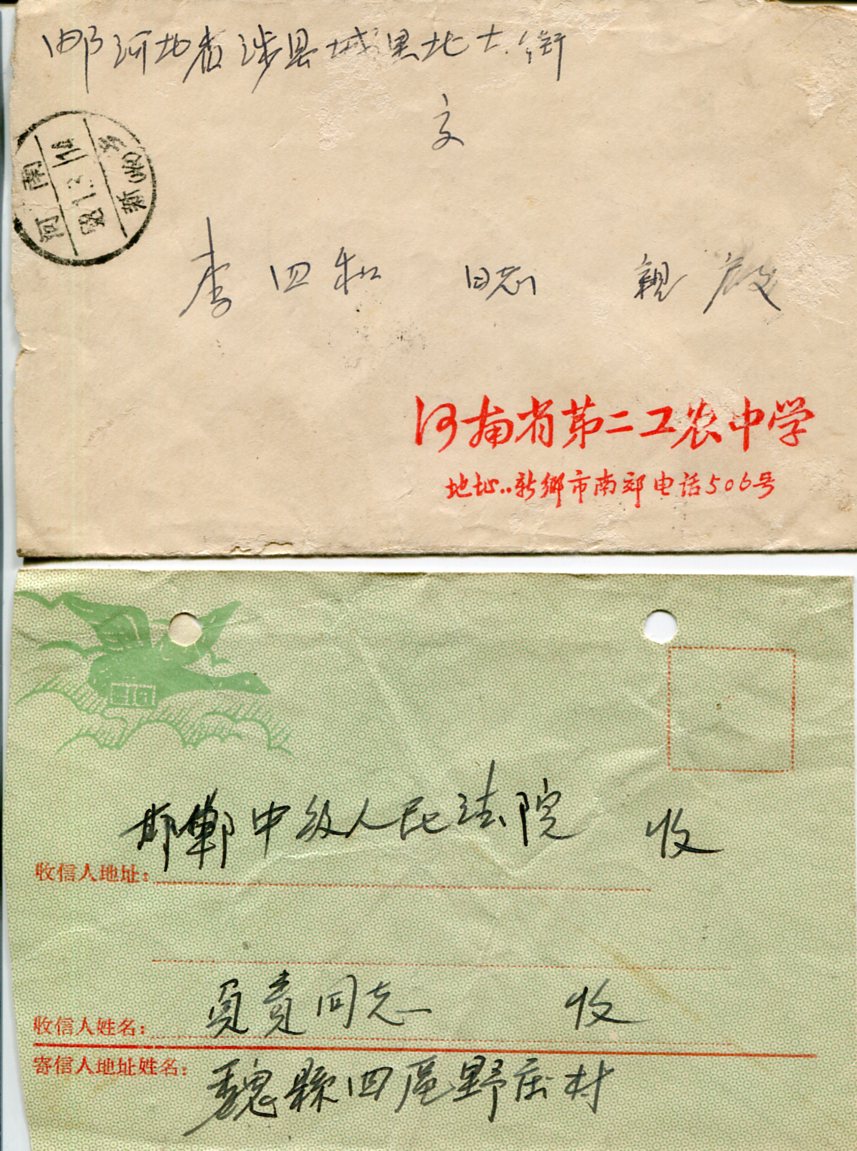 邮河北省涉县城里北大街
交
李四和 同志 親啟
河南
新乡
河南省第二工农中学
地址..新鄉市南郊电话506号
邯鄲中级人民法院 收
收信人地址:
負責同志 收
收信人姓名:
寄信人地址姓名: 魏縣四區野庄村